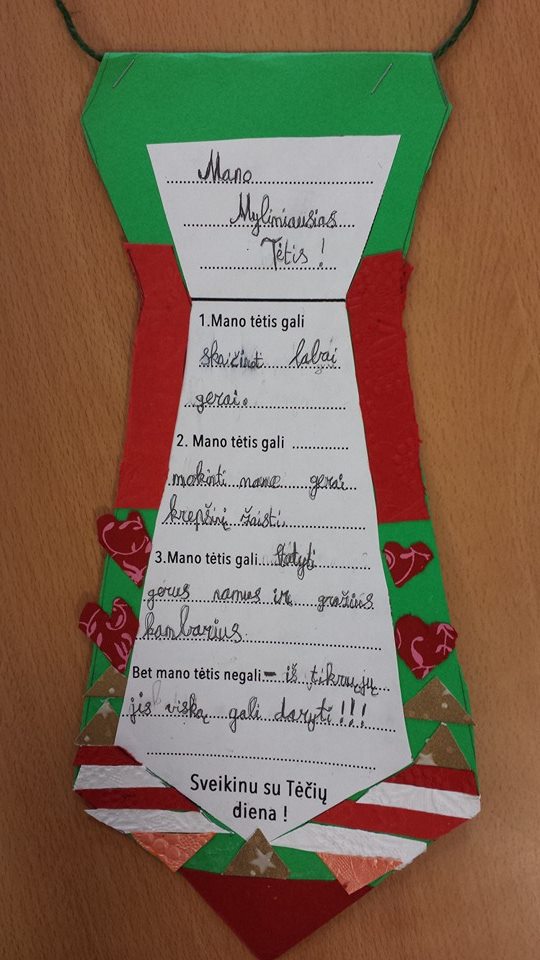 Mano
Myliniausias
Tėtis !
1.Mano tėtis gali
skaičiuot labai
gerai.
2. Mano tėtis gali
mokinti mane gerai
krepšinį žaisti.
3.Mano tėtis gali statyti
gerus namus ir gražius
kambarius.
Bet mano tėtis negali - iš tikrųjų
jis viską gali daryti!!!
Sveikinu su Tėčių
diena !